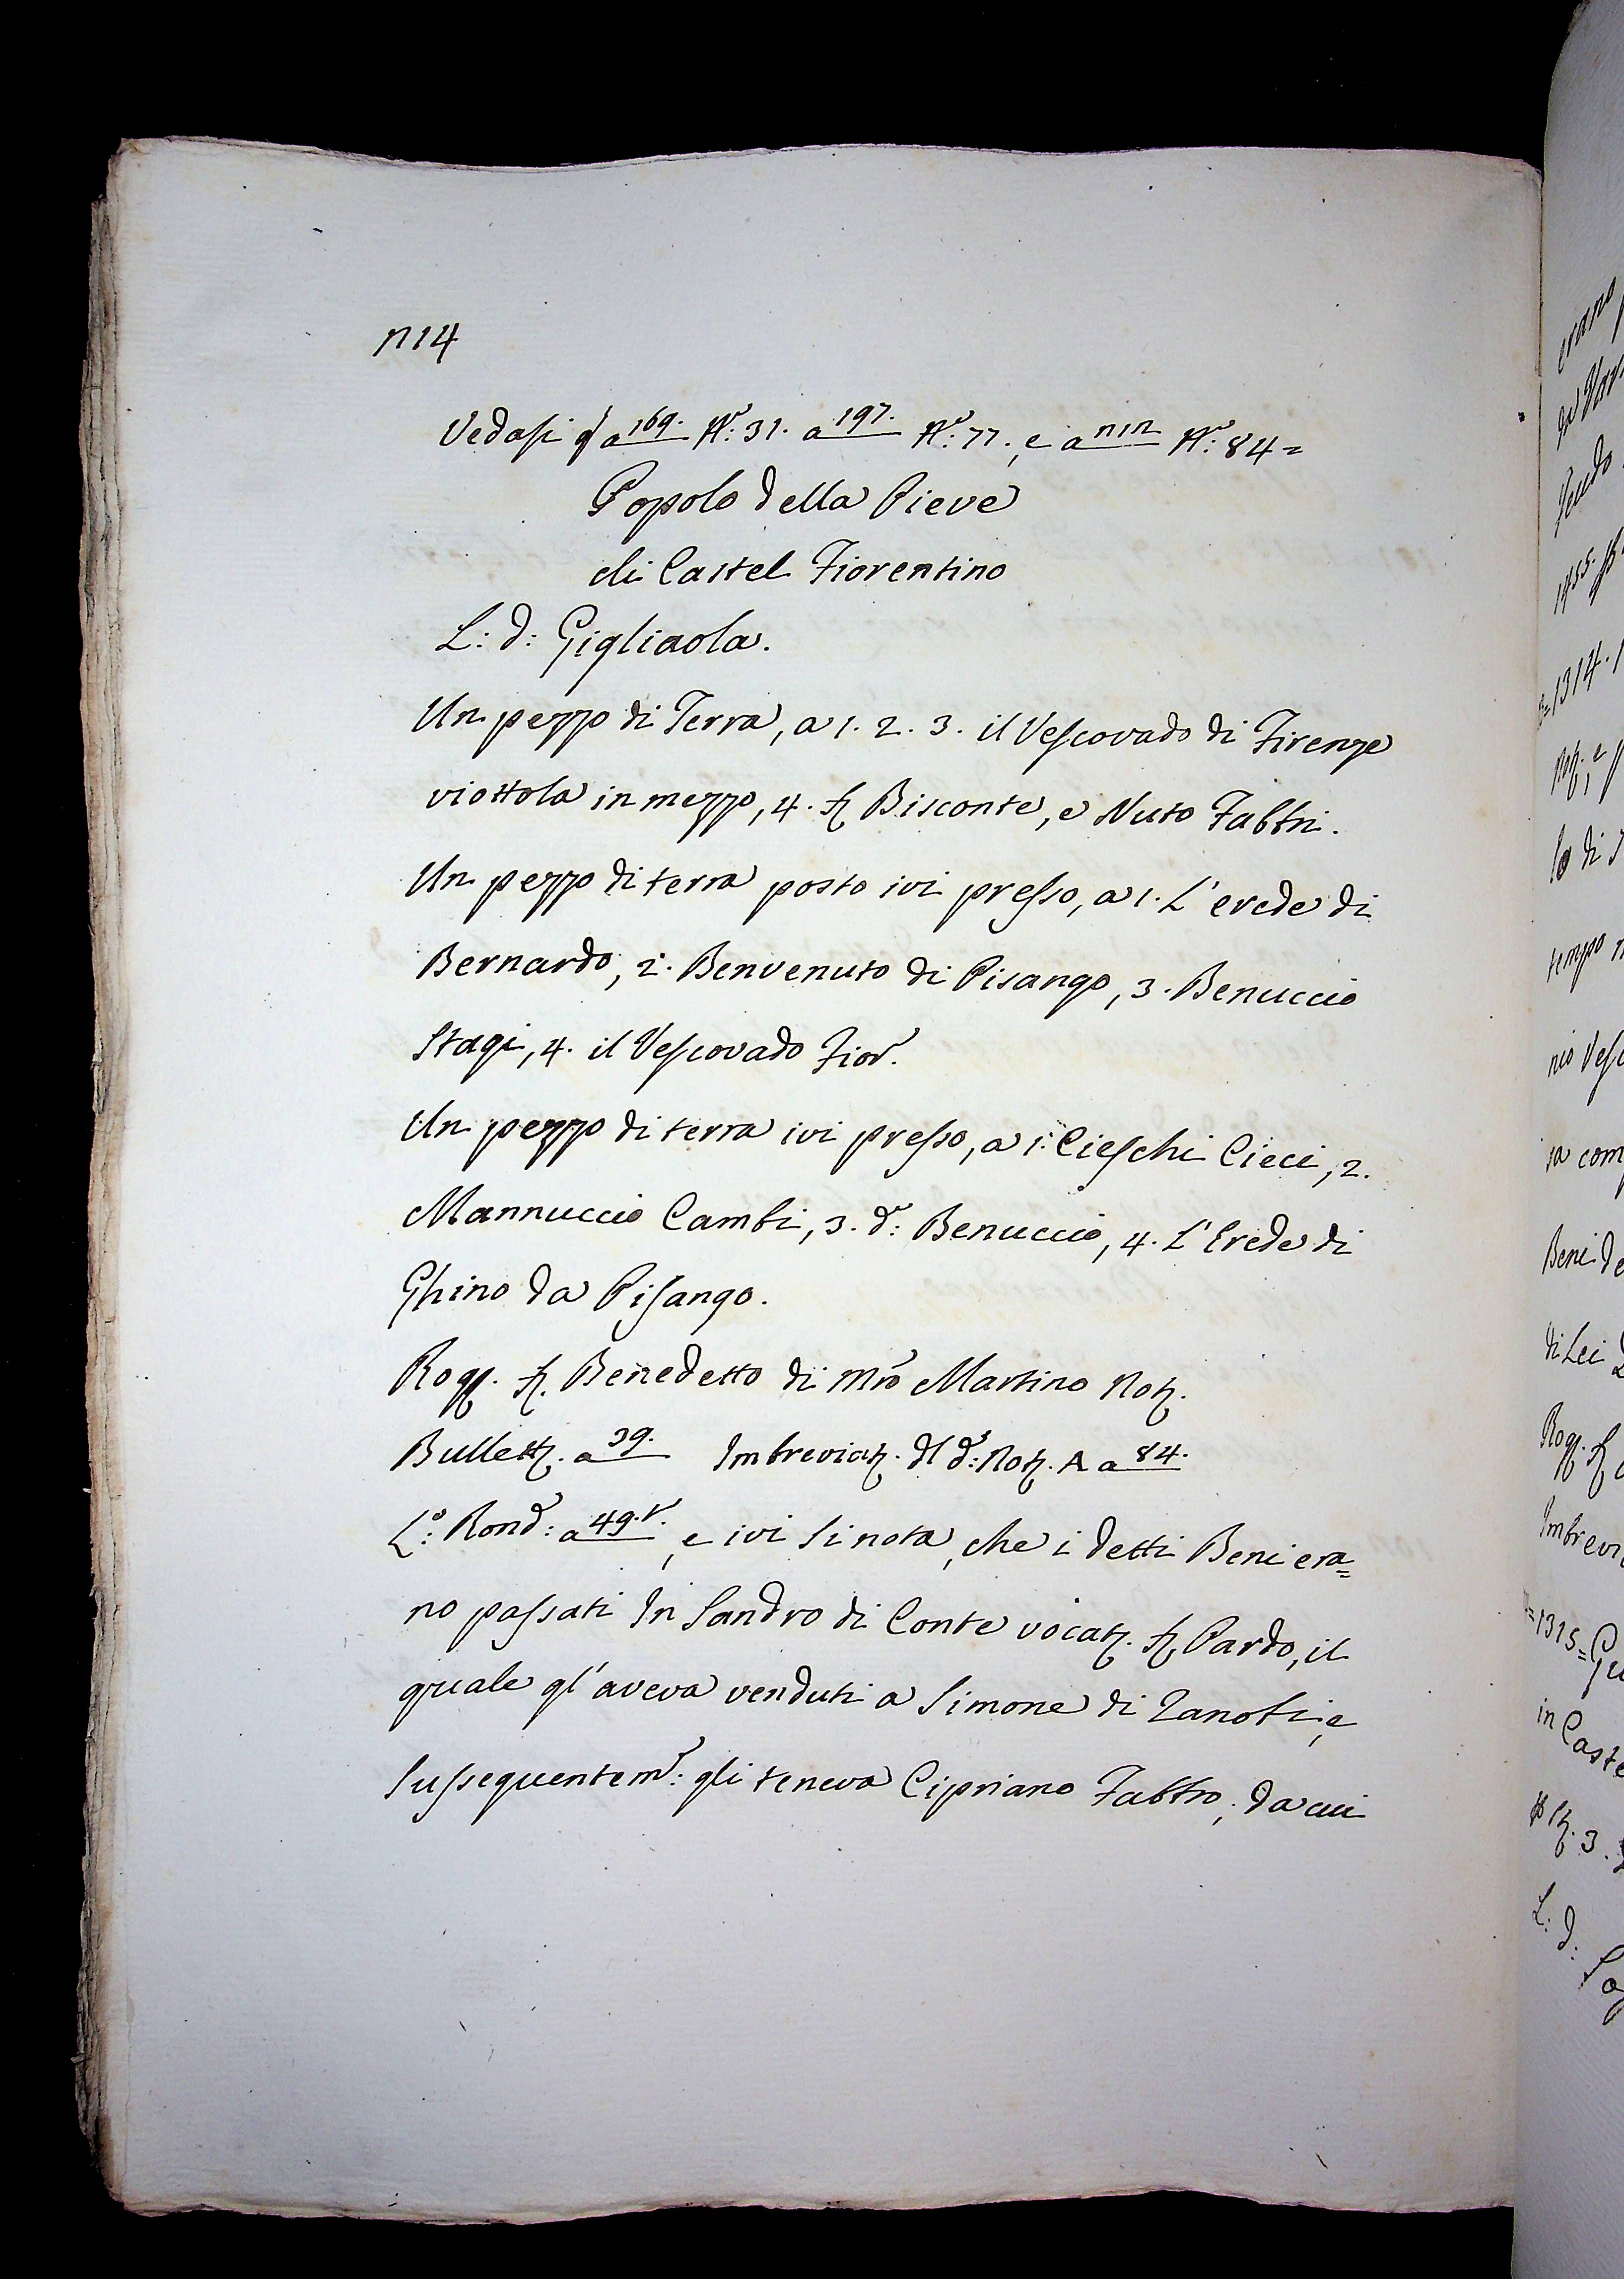 214
Vedasi q a 169. N.º: 31. a 197. N.º: 77., e a 212 N.º: 84=
Popolo della Pieve
di Castel Fiorentino
L: d: Gigliaola.
Un pezzo di Terra, a 1. 2. 3. il Vescovado di Firenze
viottola in mezzo, 4. ser Bisconte, e Nuto Fabbri.
Un pezzo di terra posto ivi presso, a 1. L'erede di
Bernardo, 2. Benvenuto di Pisango, 3. Benuccio
Stagi, 4. il Vescovado Fior.
Un pezzo di terra ivi presso, a 1. Cieschi Cieci, 2.
Mannuccio Cambi, 3. d.º: Benuccio, 4. L'Erede di
Ghino da Pisango.
Rog. ser Benedetto di Mro Martino Not.
Bullett. a 39. Imbreviat. dl d.º: Not. A a 84.
L.º: Rond.: a 49.t., e ivi si nota, che i detti Beni era=
no passati In Sandro di Conte vocat. ser Pardo, il
quale gl'aveva venduti a Simone di Zanobi, e
sussequentem.: gli teneva Cipriano Fabbro, da cui
erano
feudo
1455.
=1314.
Not., e
lo di
tempo
nio Vesc
sa com
Beni de
di Lei
Rog. ser
Imbrevi
=1315= Gu
in Caste
3.
L: d: